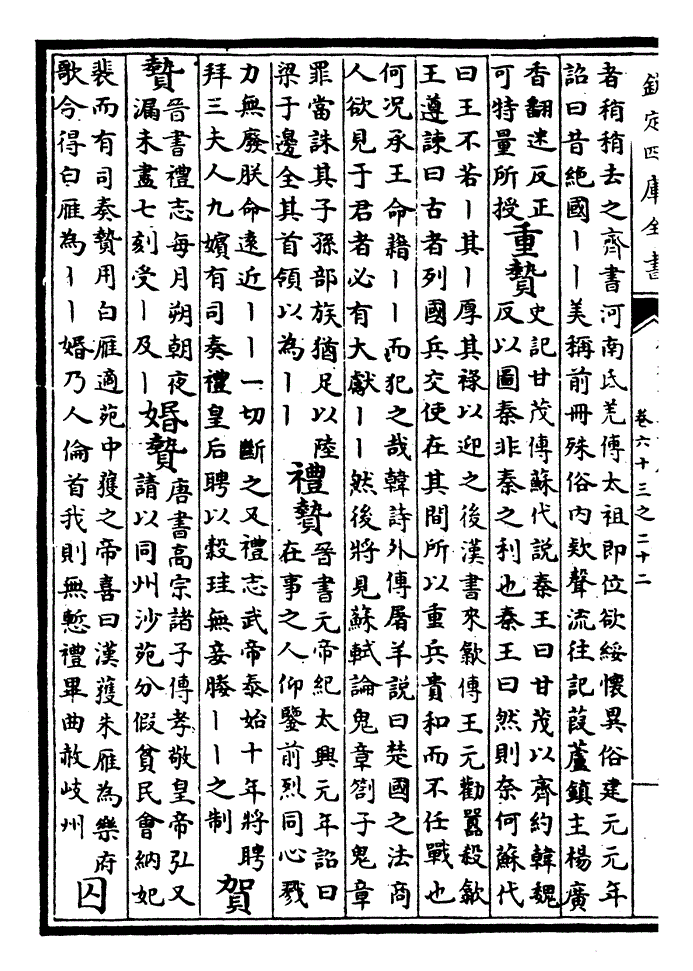 欽定四庫全書
卷六十三之二十二
者稍稍去之齊書河南氐羌傳太祖即位欲綏懷異俗建元元年
詔曰昔絶國丨丨美稱前冊殊俗内欵聲流往記葭蘆鎮主楊廣
香翻迷反正
可特量所授
重贄
史記甘茂傳蘇代説秦王曰甘茂以齊約韓魏
反以圖秦非秦之利也秦王曰然則奈何蘇代
曰王不若丨其丨厚其祿以迎之後漢書來歙傳王元勸囂殺歙
王遵諫曰古者列國兵交使在其間所以重兵貴和而不任戰也
何况承王命藉丨丨而犯之哉韓詩外傳屠羊説曰楚國之法商
人欲見于君者必有大獻丨丨然後將見蘇軾論鬼章劄子鬼章
罪當誅其子孫部族猶足以陸
梁于邊全其首領以為丨丨
禮贄
晉書元帝紀太興元年詔曰
在事之人仰鑒前烈同心戮
力無廢朕命遠近丨丨一切斷之又禮志武帝泰始十年將聘
拜三夫人九嬪有司奏禮皇后聘以穀珪無妾媵丨丨之制
賀
贄
晉書禮志每月朔朝夜
漏未盡七刻受丨及丨
婚贄
唐書高宗諸子傳孝敬皇帝弘又
請以同州沙苑分假貧民會納妃
裴而有司奏贄用白雁適苑中獲之帝喜曰漢獲朱雁為樂府
歌今得白雁為丨丨婚乃人倫首我則無慙禮畢曲赦岐州
囚